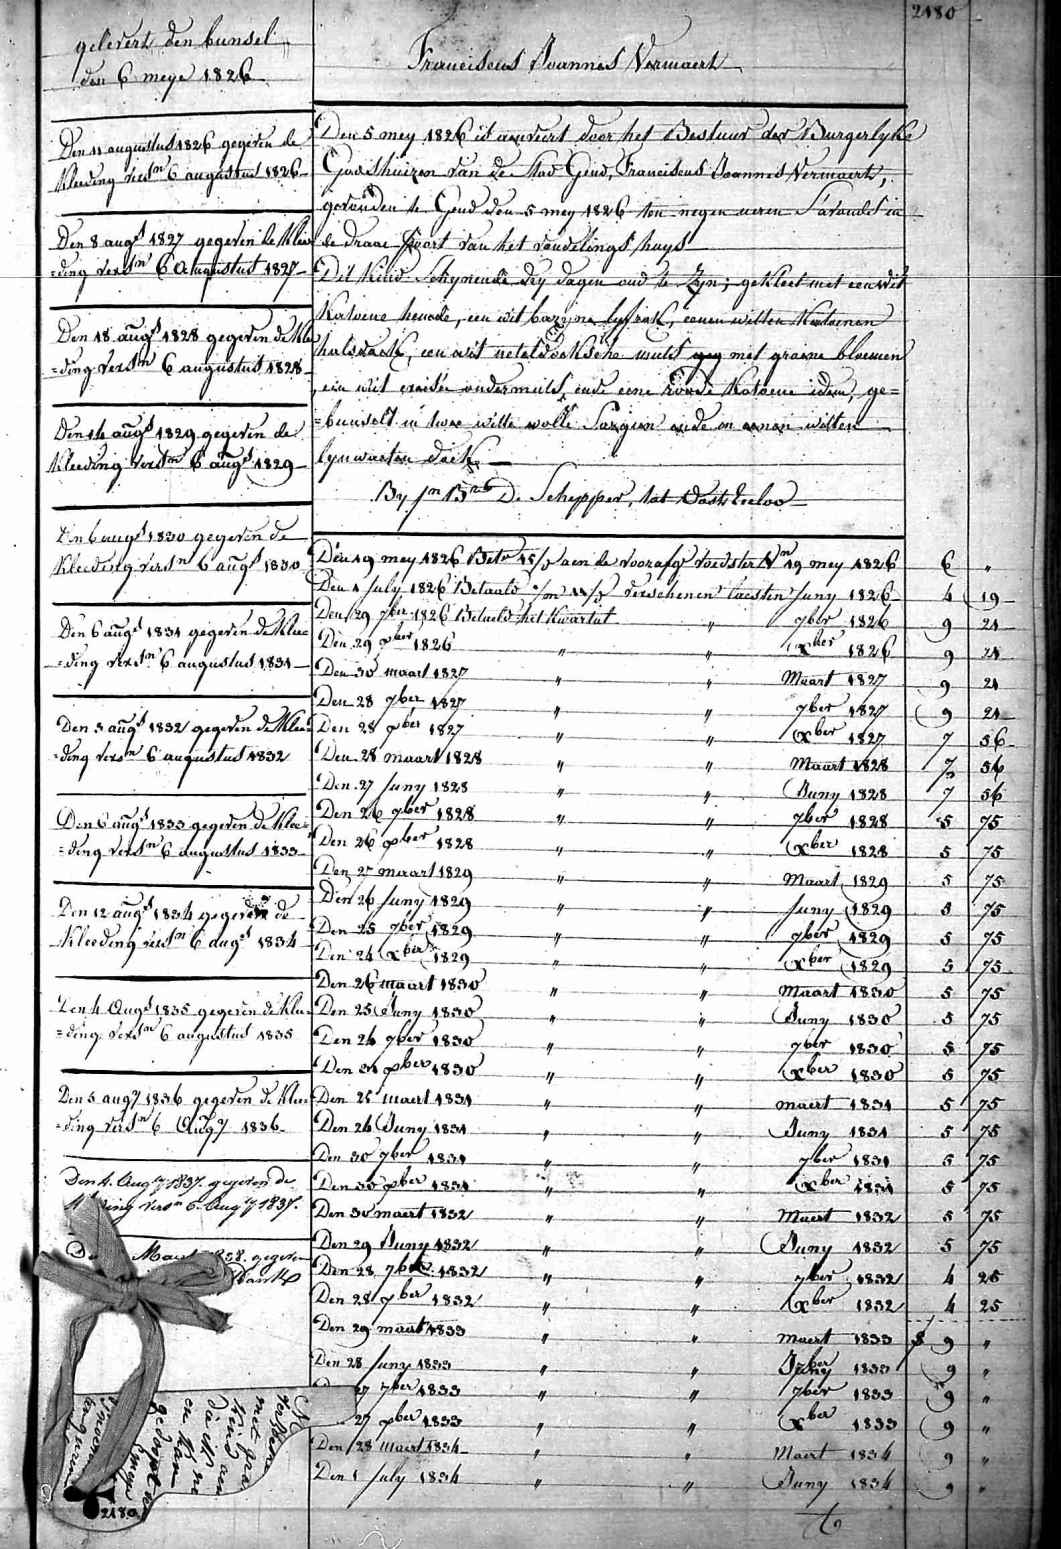 2180
gelevert den bunsel
den 6 meye 1826
Den 11 augustus 1826 gegeven de
kleeding versn 6 augustus 1826
Den 8 augt 1827 gegeven de klee
=ding versn 6 Augustus 1827
Den 18 augt 1828 gegeven de klee
=ding versn 6 augustus 1828
Den 14 augt 1829 gegeven de
kleeding versn 6 augt 1829
Den 6 augt 1830 gegeven de
kleeding versn 6 augt 1830
Den 6 augt 1831 gegeven de klee
=ding versn 6 augustus 1831
Den 3 augt 1832 gegeven de klee
=ding versn 6 augustus 1832
Den 6 augt 1833 gegeven de klee
=ding versn 6 augustus 1833
Den 12 augt 1834 gegeven de
kleeding versn 6 augt 1834
Den 4 Augt 1835 gegeven de klee
=ding versn 6 augustus 1835
Den 5 augt 1836 gegeven de klee
=ding versn 6 Augt 1836
Den 4 Augt 1837 gegeven de
versn 6 Augt 1837.
Maart gegeven
Franciscus Joannes Vermaert
Den 5 mey 1826 is aenveert door het Bestuur der Burgerlyke
Godshuizen van de stad Gend, Franciscus Joannes Vermaert,
gevonden te Gend den 5 mey 1826 ten negen uren S'avonds in
de draae poort van het vondelings huys
Dit kind schynende dry dagen oud te zyn; gekleet met een wit
katoene hemde, een wit bazyne lyfrok, eenen witten katoenen
halsdoek, een wit neteldoeksche muts met groene bloemen
, een wit ondermuts, ende eene ronde katoene idem, ge=
=bunselt in twee witte wolle Sargien ende in eenen witten
lynwaeten doek
By Jn Bte De Schepper, tot Oost Eecloo
Den 19 mey 1826 Bett 15/ aen de voorafge voedster Vn 19 mey 1826 6 "
Den 1 July 1826 Betaald verschenen laesten Juny 1826 4 19
Den 29 7ber 1826 Betaeld het kwartat " 7ber 1826 9 21
Den 29 xber 1826 " " xber 1826 9 21
Den 30 maart 1827 " " Maart 1827 9 21
Den 28 7ber 1827 " " 7ber 1827 9 21
Den 28 xber 1827 " " xber 1827 7 56
Den 28 maart 1828 " " Maart 1828 7 56
Den 27 Juny 1828 " " Juny 1828 7 56
Den 26 7ber 1828 " " 7ber 1828 5 75
Den 26 xber 1828 " " xber 1828 5 75
Den 27 maart 1829 " " Maart 1829 5 75
Den 26 Juny 1829 " " Juny 1829 5 75
Den 25 7ber 1829 " " 7ber 1829 5 75
Den 24 xber 1829 " " xber 1829 5 75
Den 26 maart 1830 " " Maart 1830 5 75
Den 25 Juny 1830 " " Juny 1830 5 75
Den 24 7ber 1830 " " 7ber 1830 5 75
Den 31 xber 1830 " " xber 1830 5 75
Den 25 maert 1831 " " maert 1831 5 75
Den 26 Juny 1831 " " Juny 1831 5 75
Den 30 7ber 1831 " " 7ber 1831 5 75
Den 30 xber 1831 " " xber 1831 5 75
Den 30 maert 1832 " " Maert 1832 5 75
Den 29 Juny 1832 " " Juny 1832 5 75
Den 28 7ber 1832 " " 7ber 1832 4 25
Den 28 xber 1832 " " xber 1832 4 25
Den 29 maart 1833 " " maert 1833 9 "
Den 28 Juny 1833 " " Juny 1833 9 "
27 7ber 1833 " " 7ber 1833 9 "
27 xber 1833 " " xber 1833 9 "
Den 28 maert 1834 " " Maert 1834 9 "
Den 1 July 1834 " " Juny 1834 9 "
2180